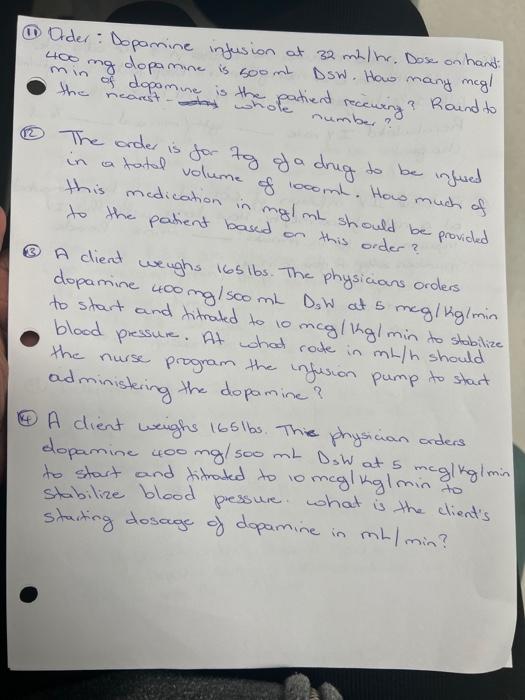 ⑪ Order: Dopamine infusion at 32 mL/hr. Dose on hand:
400 mg dopamine is 500 mL D5W. How many mcg/
min of dopamine is the patient receiving? Round to
the nearest whole number?
⑫ The order is for 7g of a drug to be infused
in a total volume of 1000mL. How much of
this medication in mg/mL should be provided
to the patient based on this order?
⑬ A client weighs 165 lbs. The physicians orders
dopamine 400 mg/500 mL D5W at 5 mcg/kg/min
to start and titrated to 10 mcg/kg/min to stabilize
blood pressure. At what rate in mL/h should
the nurse program the infusion pump to start
administering the dopamine?
⑭ A client weighs 165 lbs. The physician orders
dopamine 400 mg/500 mL D5W at 5 mcg/kg/min
to start and titrated to 10 mcg/kg/min to
stabilize blood pressure. what is the client's
starting dosage of dopamine in mL/min?